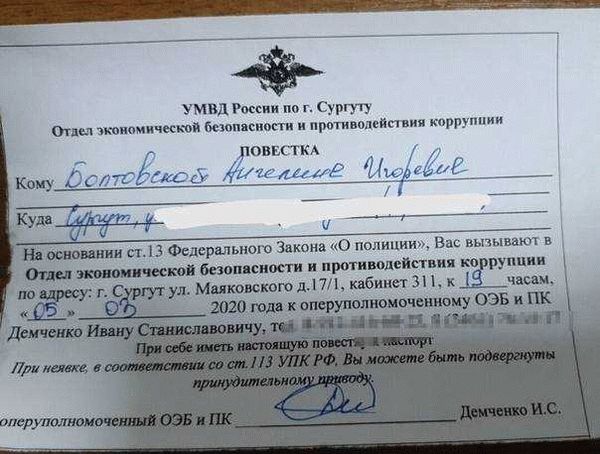 УМВД России по г. Сургуту
Отдел экономической безопасности и противодействия коррупции
ПОВЕСТКА
Кому Болтовской Ангелине Игоревне
Куда Сургут, у
На основании ст.13 Федерального Закона «О полиции», Вас вызывают в
Отдел экономической безопасности и противодействия коррупции
по адресу: г. Сургут ул. Маяковского д.17/1, кабинет 311, к 19 часам,
«05» 03 2020 года к оперуполномоченному ОЭБ и ПК
Демченко Ивану Станиславовичу, те
При себе иметь настоящую повест паспорт
При неявке, в соответствии со ст.113 УПК РФ, Вы можете быть подвергнуты
принудительному приводу.
оперуполномоченный ОЭБ и ПК Демченко И.С.